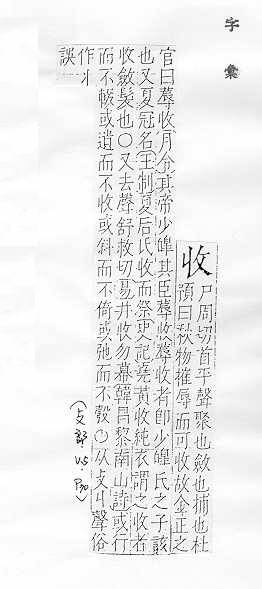 字彙
收
尸周切首平聲聚也斂也捕也杜
預曰秋物摧辱而可收故金正之
官曰蓐收月令其帝少皞其臣蓐收蓐收者卽少皞氏之子該
也又夏冠名王制夏后氏收而祭史記堯黃收純衣謂之收者
收斂髮也○又去聲舒救切易井收勿幕韓昌黎南山詩或行
而不輟或遺而不收或斜而不倚或弛而不彀○从攴丩聲俗
作丬
誤
(攴部 )